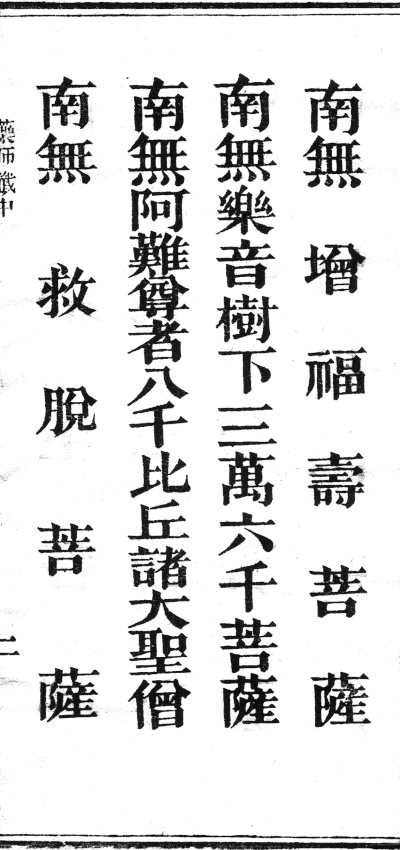 南無增福壽菩薩
南無樂音樹下三萬六千菩薩
南無阿難尊者八千比丘諸大聖僧
南無救脫菩薩
藥師懺中